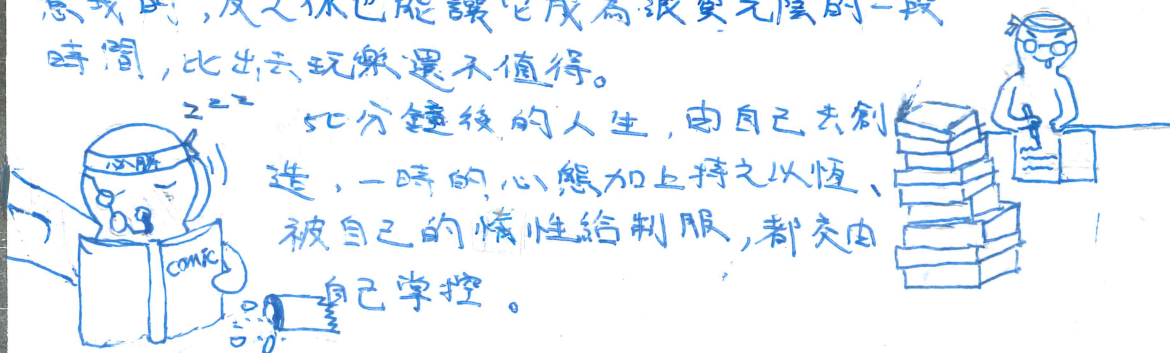 意義的,反之你也能讓它成為浪費光陰的一段
時間,比出去玩樂還不值得。
zzz
50分鐘後的人生,由自己去創
造,一時的心態加上持之以恆、
被自己的惰性給制服,都交由
自己掌控。
必勝
comic